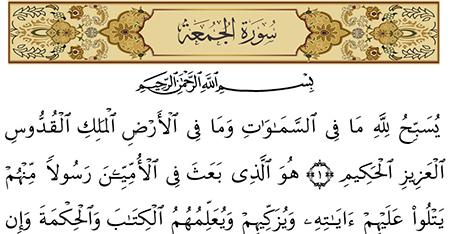 سُورَةُ الجُمُعَةِ
بِسْمِ اللَّهِ الرَّحْمَٰنِ الرَّحِيمِ
يُسَبِّحُ لِلَّهِ مَا فِى ٱلسَّمَـٰوَٰتِ وَمَا فِى ٱلْأَرْضِ ٱلْمَلِكِ ٱلْقُدُّوسِ
ٱلْعَزِيزِ ٱلْحَكِيمِ ﴿١﴾ هُوَ ٱلَّذِى بَعَثَ فِى ٱلْأُمِّيِّـۧنَ رَسُولاً مِّنْهُمْ
يَتْلُوا۟ عَلَيْهِمْ ءَايَـٰتِهِۦ وَيُزَكِّيهِمْ وَيُعَلِّمُهُمُ ٱلْكِتَـٰبَ وَٱلْحِكْمَةَ وَإِن